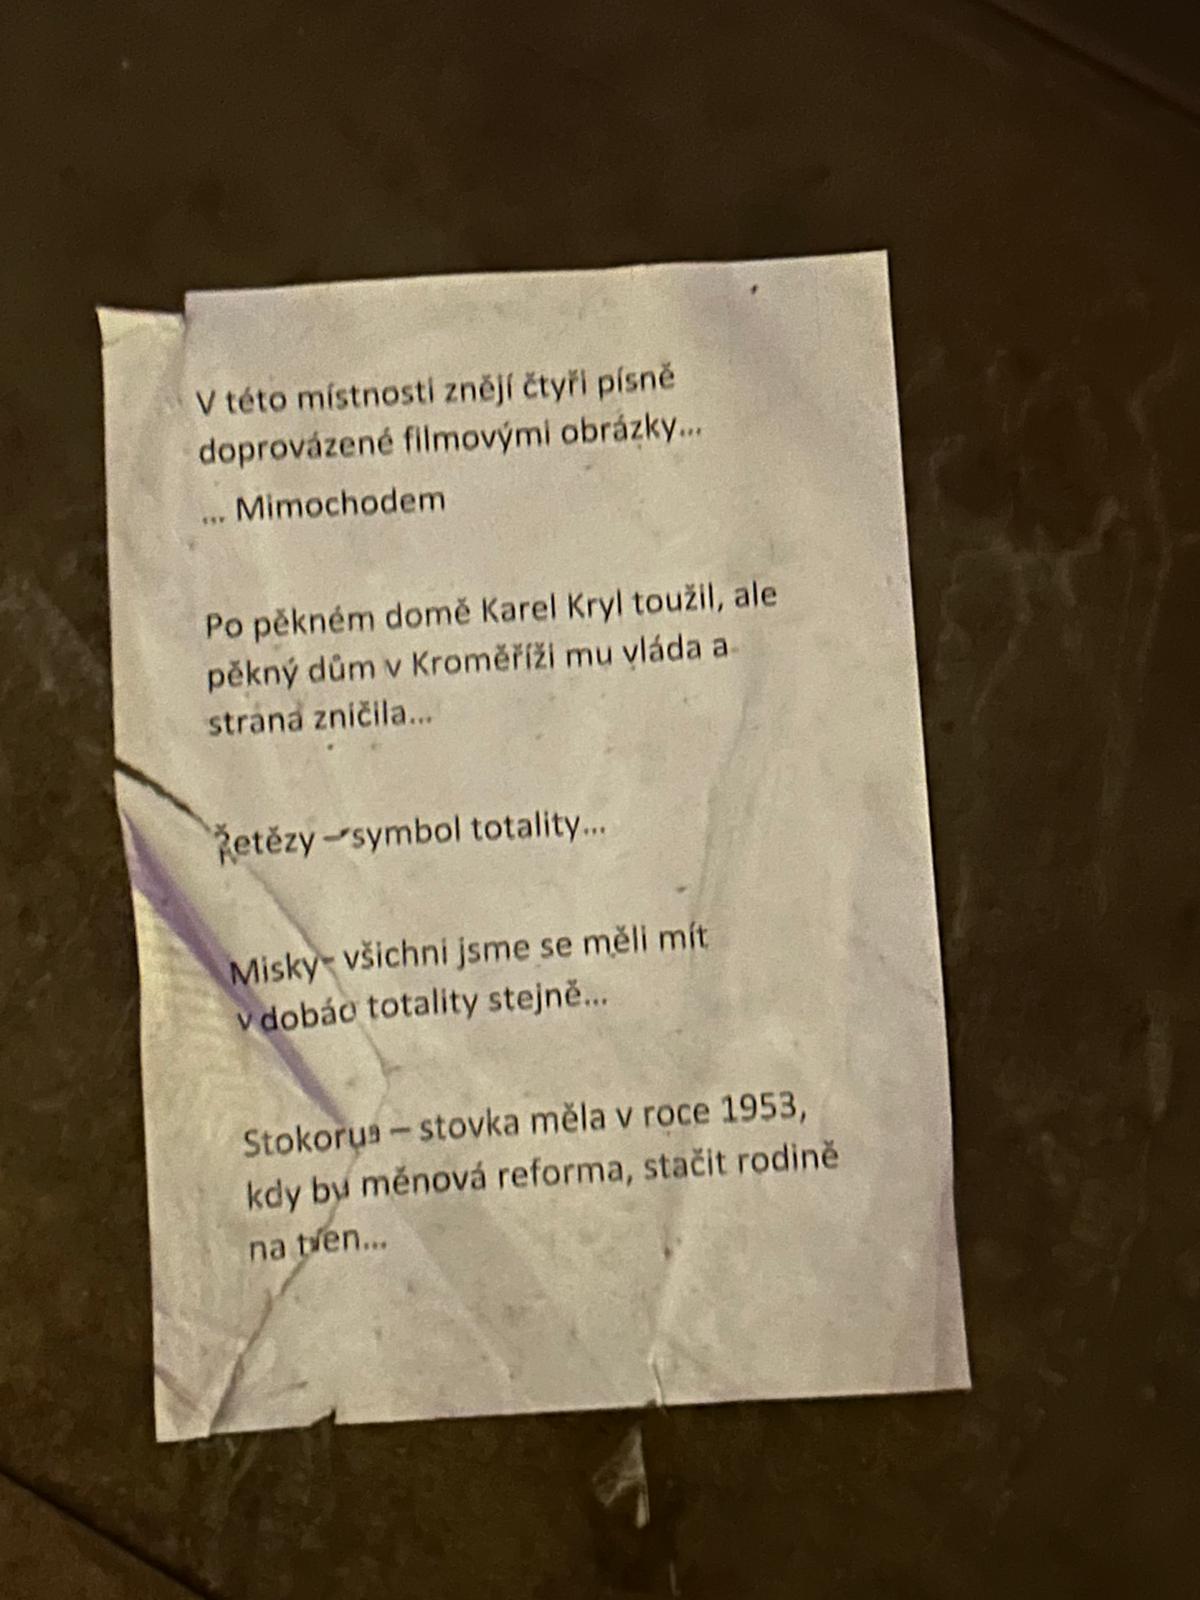 V této místnosti znějí čtyři písně
doprovázené filmovými obrázky...
... Mimochodem
Po pěkném domě Karel Kryl toužil, ale
pěkný dům v Kroměříži mu vláda a
strana zničila...
Řetězy – symbol totality...
Misky- všichni jsme se měli mít
v dobác totality stejně...
Stokorua – stovka měla v roce 1953,
kdy by měnová reforma, stačit rodině
na